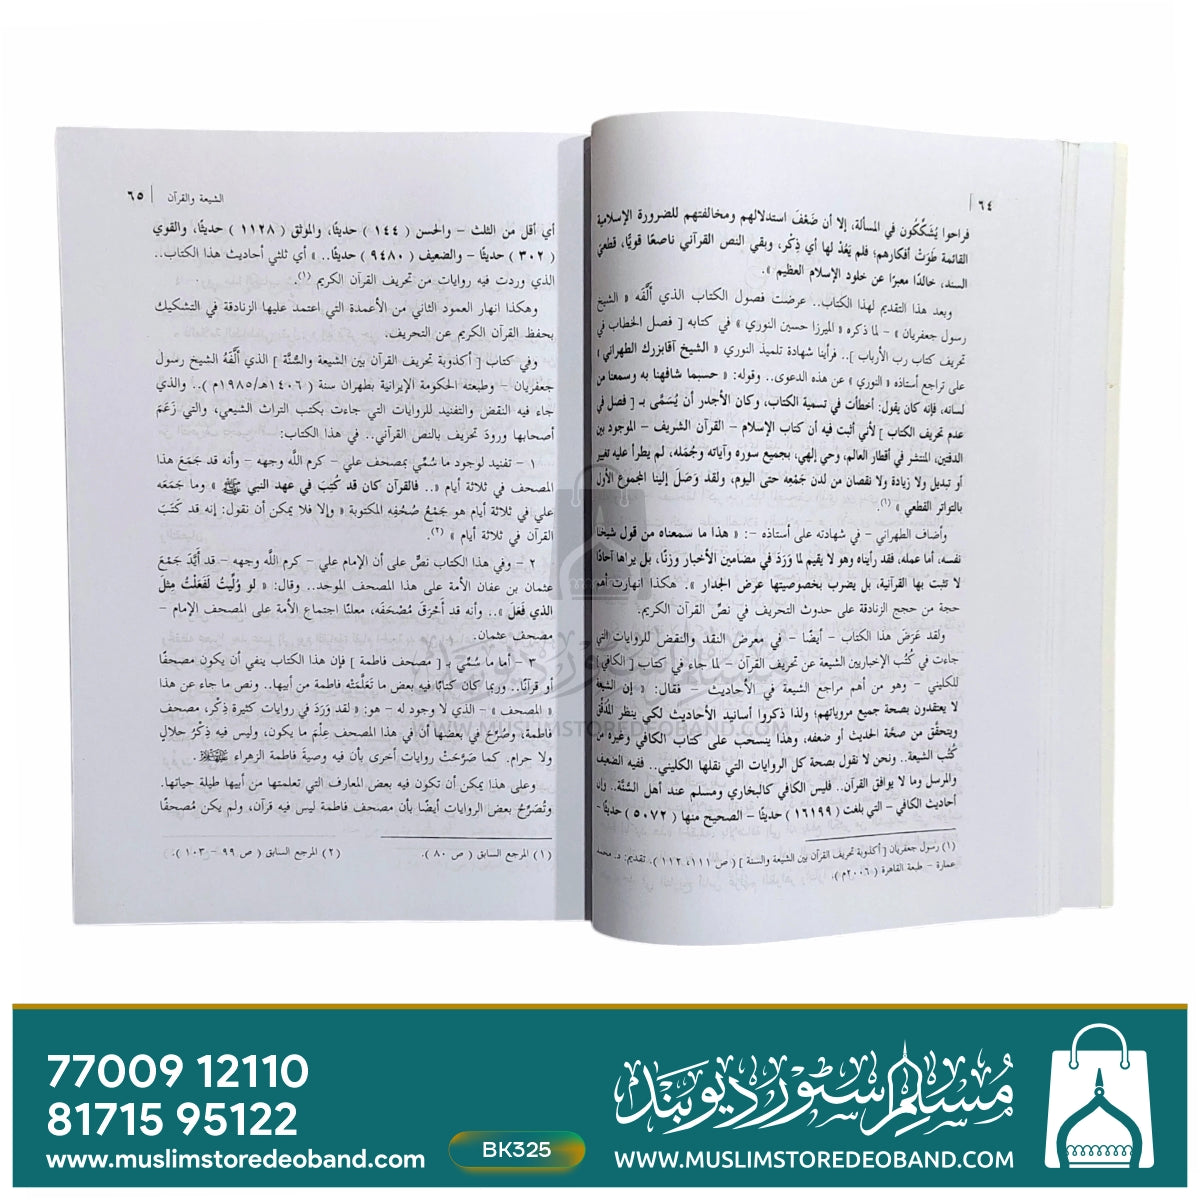 ٦٤
فراحوا يُشكِّكُون في المسألة، إلا أن ضَعْفَ استدلالهم ومخالفتهم للضرورة الإسلامية
القائمة طَوَتْ أفكارهم؛ فلم يَعُدْ لها أي ذِكْر، وبقي النص القرآني ناصعًا قويًّا، قطعيَ
السند، خالدًا معبرًا عن خلود الإسلام العظيم » .
وبعد هذا التقديم لهذا الكتاب.. عرضت فصول الكتاب الذي ألَّفه « الشيخ
رسول جعفريان » - لما ذكره « الميرزا حسين النوري » في كتابه [ فصل الخطاب في
تحريف كتاب رب الأرباب ].. فرأينا شهادة تلميذ النوري « الشيخ آقابزرك الطهراني »
على تراجع أستاذه « النوري » عن هذه الدعوى.. وقوله: « حسبما شافهنا به وسمعنا من
لسانه، فإنه كان يقول: أخطأت في تسمية الكتاب، وكان الأجدر أن يُسَمَّى بـ [ فصل في
عدم تحريف الكتاب ] لأني أثبت فيه أن كتاب الإسلام - القرآن الشريف - الموجود بين
الدفتين، المنتشر في أقطار العالم، وحي إلهي، بجميع سوره وآياته وجُمَله، لم يطرأ عليه تغير
أو تبديل ولا زيادة ولا نقصان من لدن جَمْعِه حتى اليوم، ولقد وَصَلَ إلينا المجموع الأول
بالتواتر القطعي » (١).
وأضاف الطهراني - في شهادته على أستاذه -: « هذا ما سمعناه من قول شيخنا
نفسه، أما عمله، فقد رأيناه وهو لا يقيم لما وَرَدَ في مضامين الأخبار وزنًا، بل يراها آحادًا
لا تثبت بها القرآنية، بل يضرب بخصوصيتها عرض الجدار » . هكذا انهارت أهم
حجة من حجج الزنادقة على حدوث التحريف في نصِّ القرآن الكريم.
ولقد عَرَضَ هذا الكتاب - أيضًا - في معرض النقد والنقض للروايات التي
جاءت في كُتُب الإخباريين الشيعة عن تحريف القرآن - لما جاء في كتاب [ الكافي ]
للكليني - وهو من أهم مراجع الشيعة في الأحاديث - فقال: « إن الشيعة
لا يعتقدون بصحة جميع مروياتهم؛ ولذا ذكروا أسانيد الأحاديث لكي ينظر المدقِّق
ويتحقق من صحَّة الحديث أو ضعفه، وهذا ينسحب على كتاب الكافي وغيره من
كُتُب الشيعة.. ونحن لا نقول بصحة كل الروايات التي نقلها الكليني.. ففيه الضعيف
والمرسل وما لا يوافق القرآن.. فليس الكافي كالبخاري ومسلم عند أهل السُّنَّة.. وإن
أحاديث الكافي - التي بلغت ( ١٦١٩٩ ) حديثًا - الصحيح منها ( ٥٠٧٢ ) حديثًا -
(١) رسول جعفريان [ أكذوبة تحريف القرآن بين الشيعة والسنة ] ( ص ١١١، ١١٢ ). تقديم: د. محمد
عمارة - طبعة القاهرة ( ٢٠٠٦م ).
الشيعة والقرآن ٦٥
أي أقل من الثلث - والحسن ( ١٤٤ ) حديثًا، والموثق ( ١١٢٨ ) حديثًا، والقوي
( ٣٠٢ ) حديثًا - والضعيف ( ٩٤٨٠ ) حديثًا.. » أي ثلثي أحاديث هذا الكتاب..
الذي وردت فيه روايات من تحريف القرآن الكريم (١).
وهكذا انهار العمود الثاني من الأعمدة التي اعتمد عليها الزنادقة في التشكيك
بحفظ القرآن الكريم عن التحريف.
وفي كتاب [ أكذوبة تحريف القرآن بين الشيعة والسُّنَّة ] الذي ألَّفَهُ الشيخ رسول
جعفريان - وطبعته الحكومة الإيرانية بطهران سنة ( ١٤٠٦هـ/١٩٨٥م ).. والذي
جاء فيه النقض والتفنيد للروايات التي جاءت بكتب التراث الشيعي، والتي زَعَمَ
أصحابها ورودَ تحريف بالنص القرآني.. في هذا الكتاب:
١ - تفنيد لوجود ما سُمِّي بمصحف علي - كرم اللَّه وجهه - وأنه قد جَمَعَ هذا
المصحف في ثلاثة أيام «.. فالقرآن كان قد كُتِبَ في عهد النبي ﷺ » وما جَمَعَه
علي في ثلاثة أيام هو جَمْعُ صُحُفِه المكتوبة « وإلا فلا يمكن أن نقول: إنه قد كَتَبَ
القرآن في ثلاثة أيام » (٢).
٢ - وفي هذا الكتاب نصٌّ على أن الإمام علي - كرم اللَّه وجهه - قد أَيَّدَ جَمْعَ
عثمان بن عفان الأمة على هذا المصحف الموحد.. وقال: « لو وُلِّيتُ لفَعَلْتُ مِثلَ
الذي فَعَلَ ».. وأنه قد أَحْرَقَ مُصْحَفَه، معلنًا اجتماع الأمة على المصحف الإمام -
مصحف عثمان.
٣ - أما ما سُمِّيَ بـ [ مصحف فاطمة ] فإن هذا الكتاب ينفي أن يكون مصحفًا
أو قرآنًا.. وربما كان كتابًا فيه بعض ما تَعَلَّمَتْه فاطمة من أبيها.. ونص ما جاء عن هذا
« المصحف » - الذي لا وجود له - هو: « لقد وَرَدَ في روايات كثيرة ذِكْر، مصحف
فاطمة، وصُرِّحَ في بعضها أن في هذا المصحف عِلمَ ما يكون، وليس فيه ذِكْرُ حلالٍ
ولا حرام. كما صَرَّحَتْ روايات أخرى بأن فيه وصيةَ فاطمة الزهراء .
وعلى هذا يمكن أن تكون فيه بعض المعارف التي تعلمتها من أبيها طيلة حياتها.
وتُصَرِّحُ بعض الروايات أيضًا بأن مصحف فاطمة ليس فيه قرآن، ولم يكن مُصحفًا
(١) المرجع السابق ( ص ٨٠ ). (٢) المرجع السابق ( ص ٩٩ - ١٠٣ ).
مسلم سٹور دیوبند
WWW.MUSLIMSTOREDEOBAND.COM
77009 12110
81715 95122
www.muslimstoredeoband.com
BK325
مسلم سٹور دیوبند
WWW.MUSLIMSTOREDEOBAND.COM